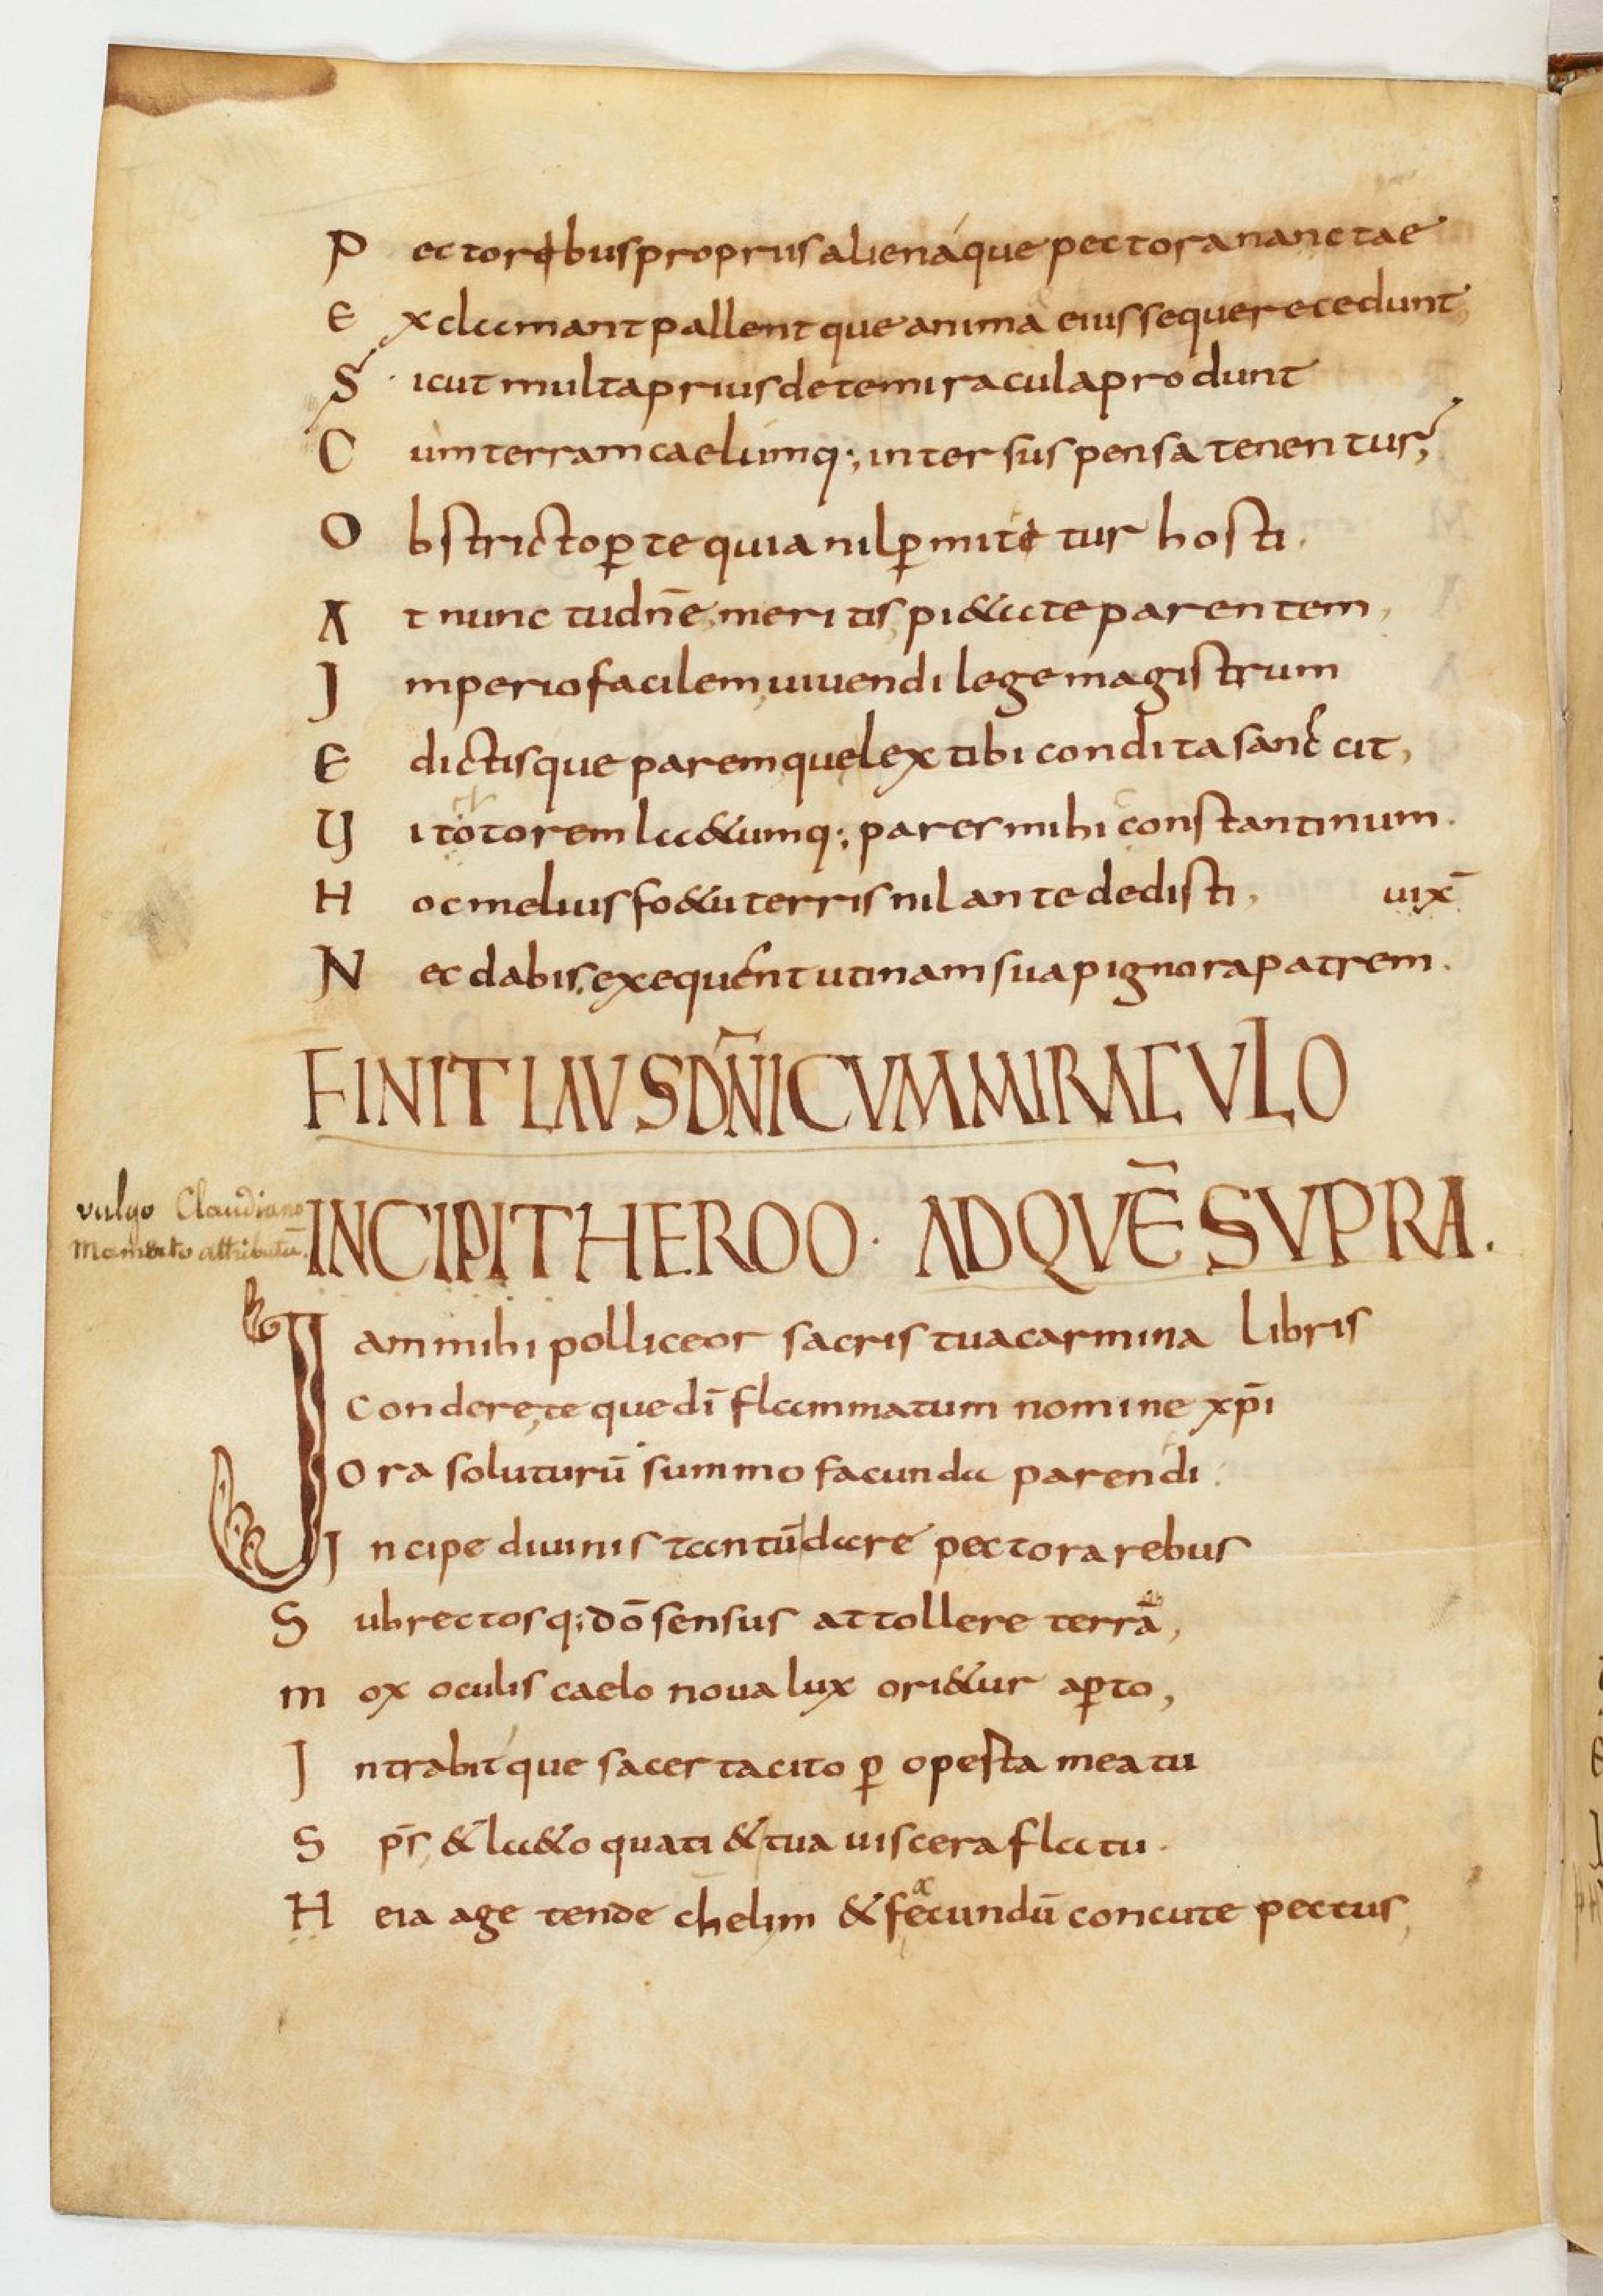 P ectoribus propriis alienaque pectora nanctae
E xclamant pallentque anima eiusseque recedunt
S icut multa prius de te miracula produnt
C um terram caelumq; inter suspensa tenentur,
O bstricto p̱ te quia nil p̱mititur hosti.
A t nunc tu dn̄e, meritis, pietate parentem,
I mperio facilem, uiuendi lege magistrum
E dictisque parem, quae lex tibi condita sancit,
U ictorem laetumq; pares mihi constantinum.
H oc melius foetu terris nil ante dedisti, uix̄
N ec dabis, exequent utinam sua pignora patrem.
FINIT LAUS DN̄I CVM MIRACVLO
vulgo Claudiano
Mamerto attributū.
INCIPIT HEROO · AD QVĒ SVPRA.
I am mihi polliceor sacris tua carmina libris
Condere, teque dī flammatum nomine xp̄i
Ora soluturū summo facunda parendi.
Incipe diuinis tantū dare pectora rebus
S ubrectosq; dō sensus attollere terrā,
m ox oculis caelo noua lux orietur ap̱to,
I ntrabitque sacer tacito p̱ operta meatu
S ps̄, & laeto quati & tua uiscera flatu.
H eia age tende chelim & fecundū concute pectus,